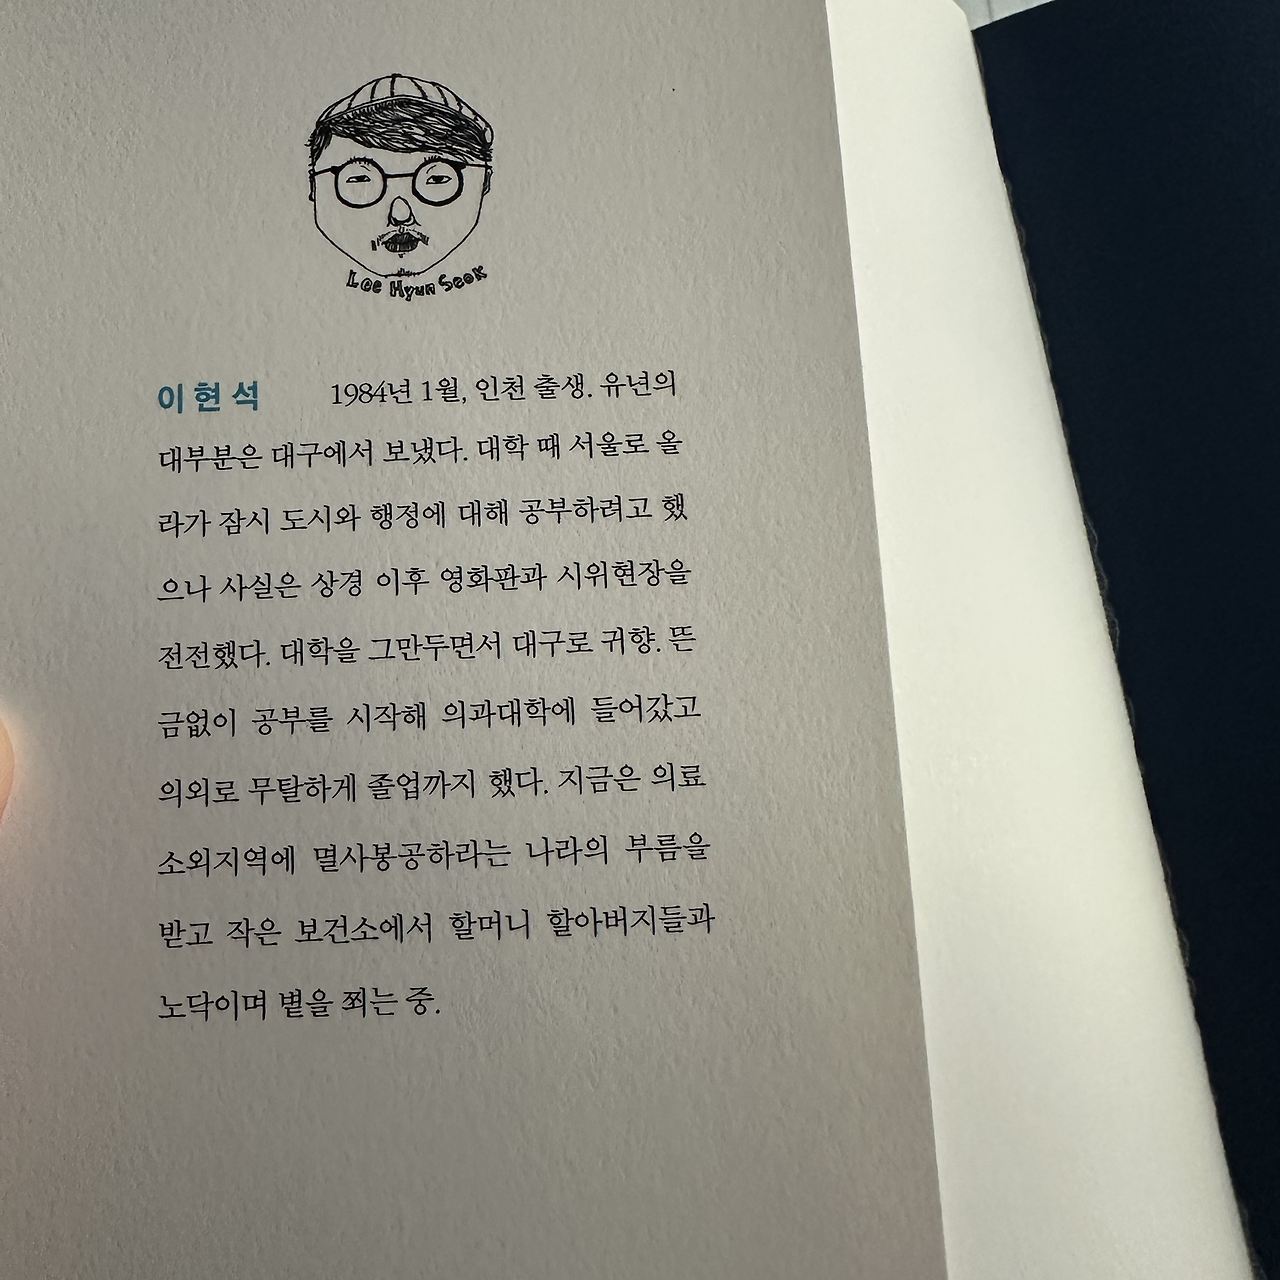 Lee Hyun Seok
이현석 1984년 1월, 인천 출생. 유년의
대부분은 대구에서 보냈다. 대학 때 서울로 올
라가 잠시 도시와 행정에 대해 공부하려고 했
으나 사실은 상경 이후 영화판과 시위현장을
전전했다. 대학을 그만두면서 대구로 귀향. 뜬
금없이 공부를 시작해 의과대학에 들어갔고
의외로 무탈하게 졸업까지 했다. 지금은 의료
소외지역에 멸사봉공하라는 나라의 부름을
받고 작은 보건소에서 할머니 할아버지들과
노닥이며 볕을 쬐는 중.